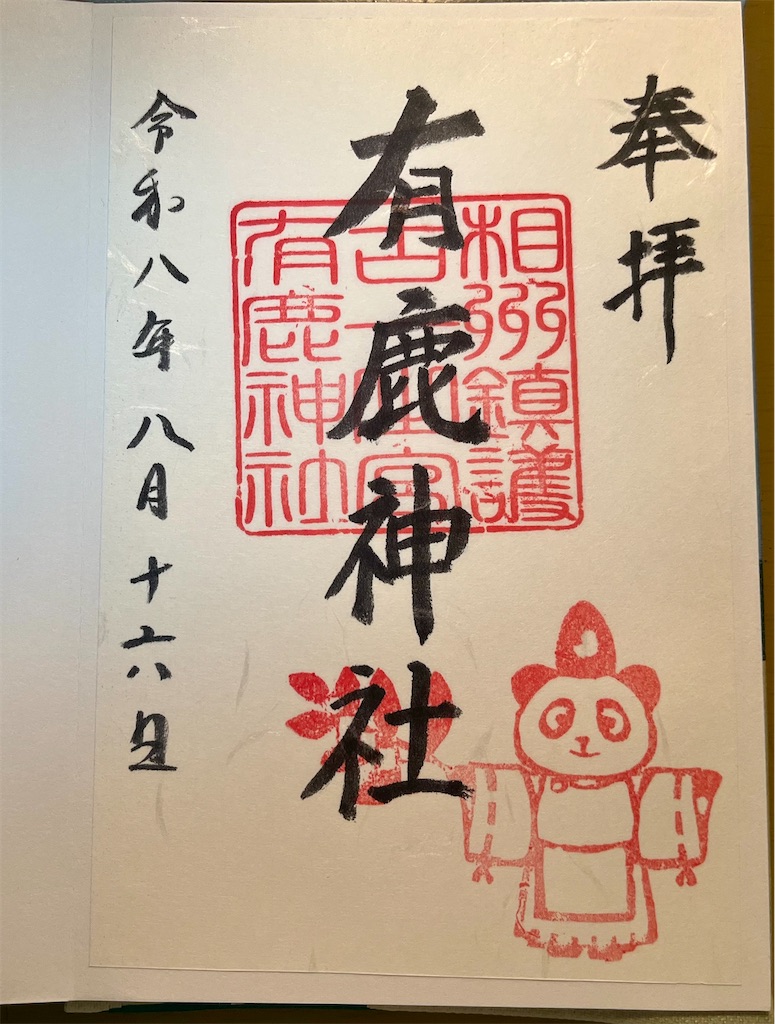 奉拝
有鹿神社
相州鎮護
有鹿神社
令和八年八月十六日